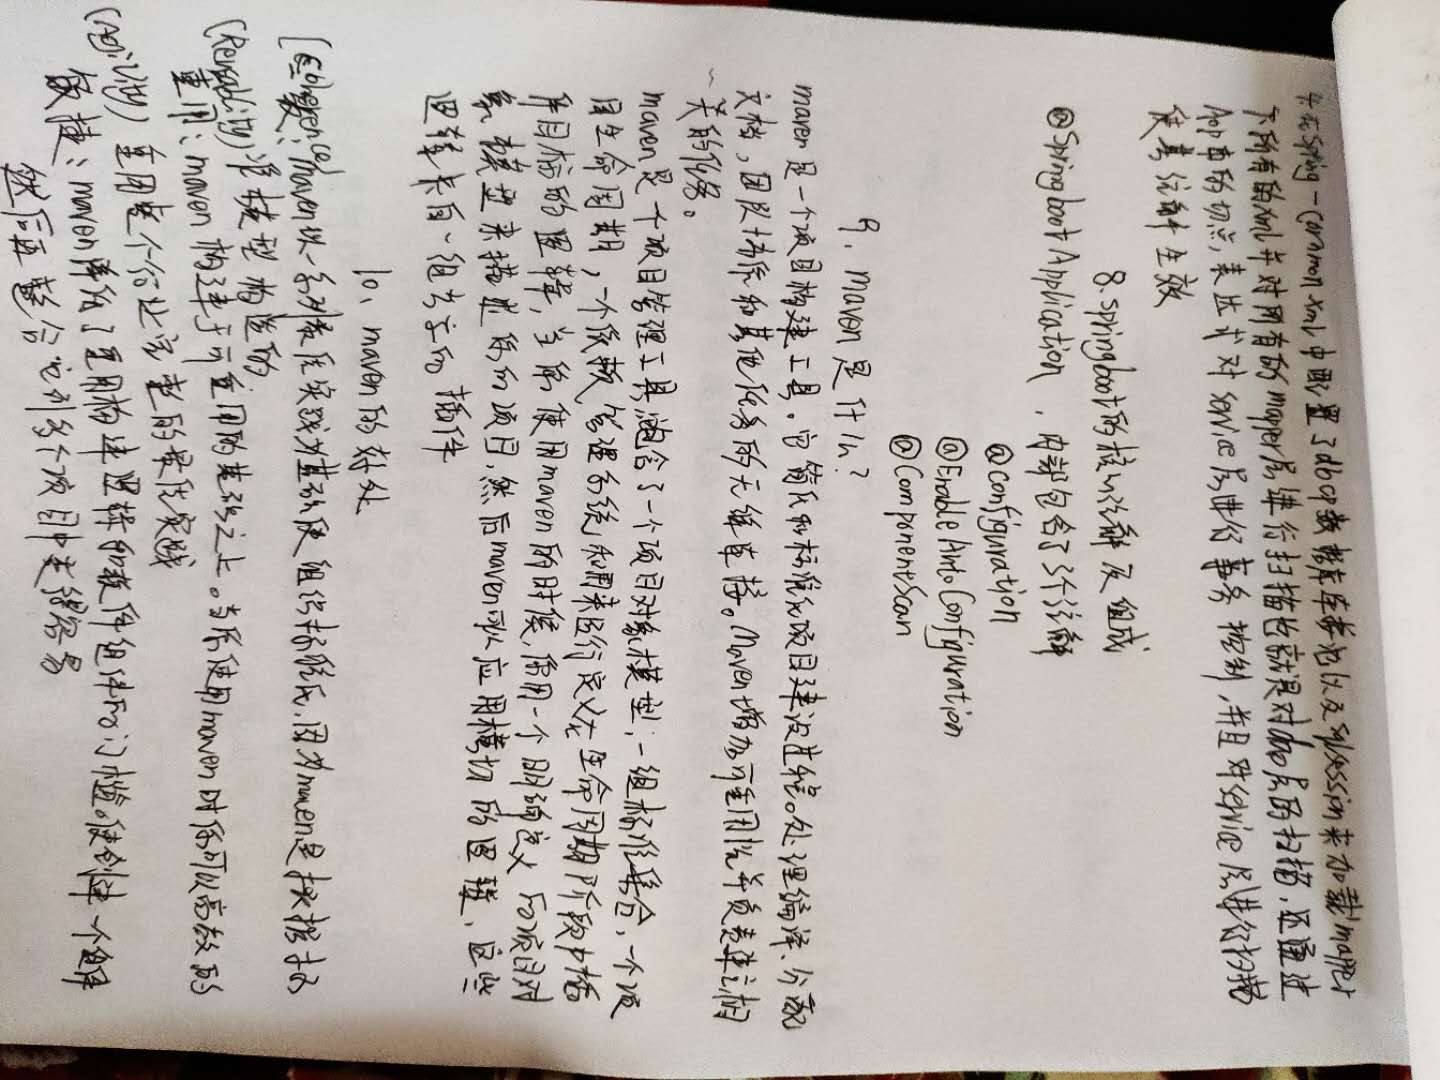 4.在Spring-common.xml中配置了dbcp数据库连接池以及sqlsession来加载mapper
下所有的xml并对所有的mapper层进行扫描也就是对dao层的扫描，还通过
Aop里的切点表达式对service层进行事务控制，并且对service层进行扫描
使其注解生效
8. springboot的核心注解及组成
@SpringbootApplication，内部包含了3个注解
@Configuration
@EnableAutoConfiguration
@ComponentScan
9、maven是什么？
maven是一个项目构建工具。它简化和标准化项目建设过程。处理编译、分配
文档，团队协作和其他任务的无缝连接。Maven增加可重用性并负责建立相
关的任务。
maven是个项目管理工具，包含了一个项目对象模型，一组标准集合，一个项
目生命周期，一个依赖管理系统和用来运行定义在生命周期阶段中插
件目标的逻辑，当你使用maven的时候，你用一个明确定义的项目对
象模型来描述你的项目，然后maven可以应用横切的逻辑，这些
逻辑来自一组共享的插件
10、maven的好处
(Coherence)
maven以一系列最佳实践为基础使组织标准化，因为maven是
准模型构造的
(Reusability)
重用：maven构建于可重用的基础之上。当你使用maven时你可以高效的
重用整个行业的最佳实践
(Agility)
敏捷：maven降低了重用构建逻辑和软件组件的门槛。使创建一个组件
然后整合它到多个项目中更容易